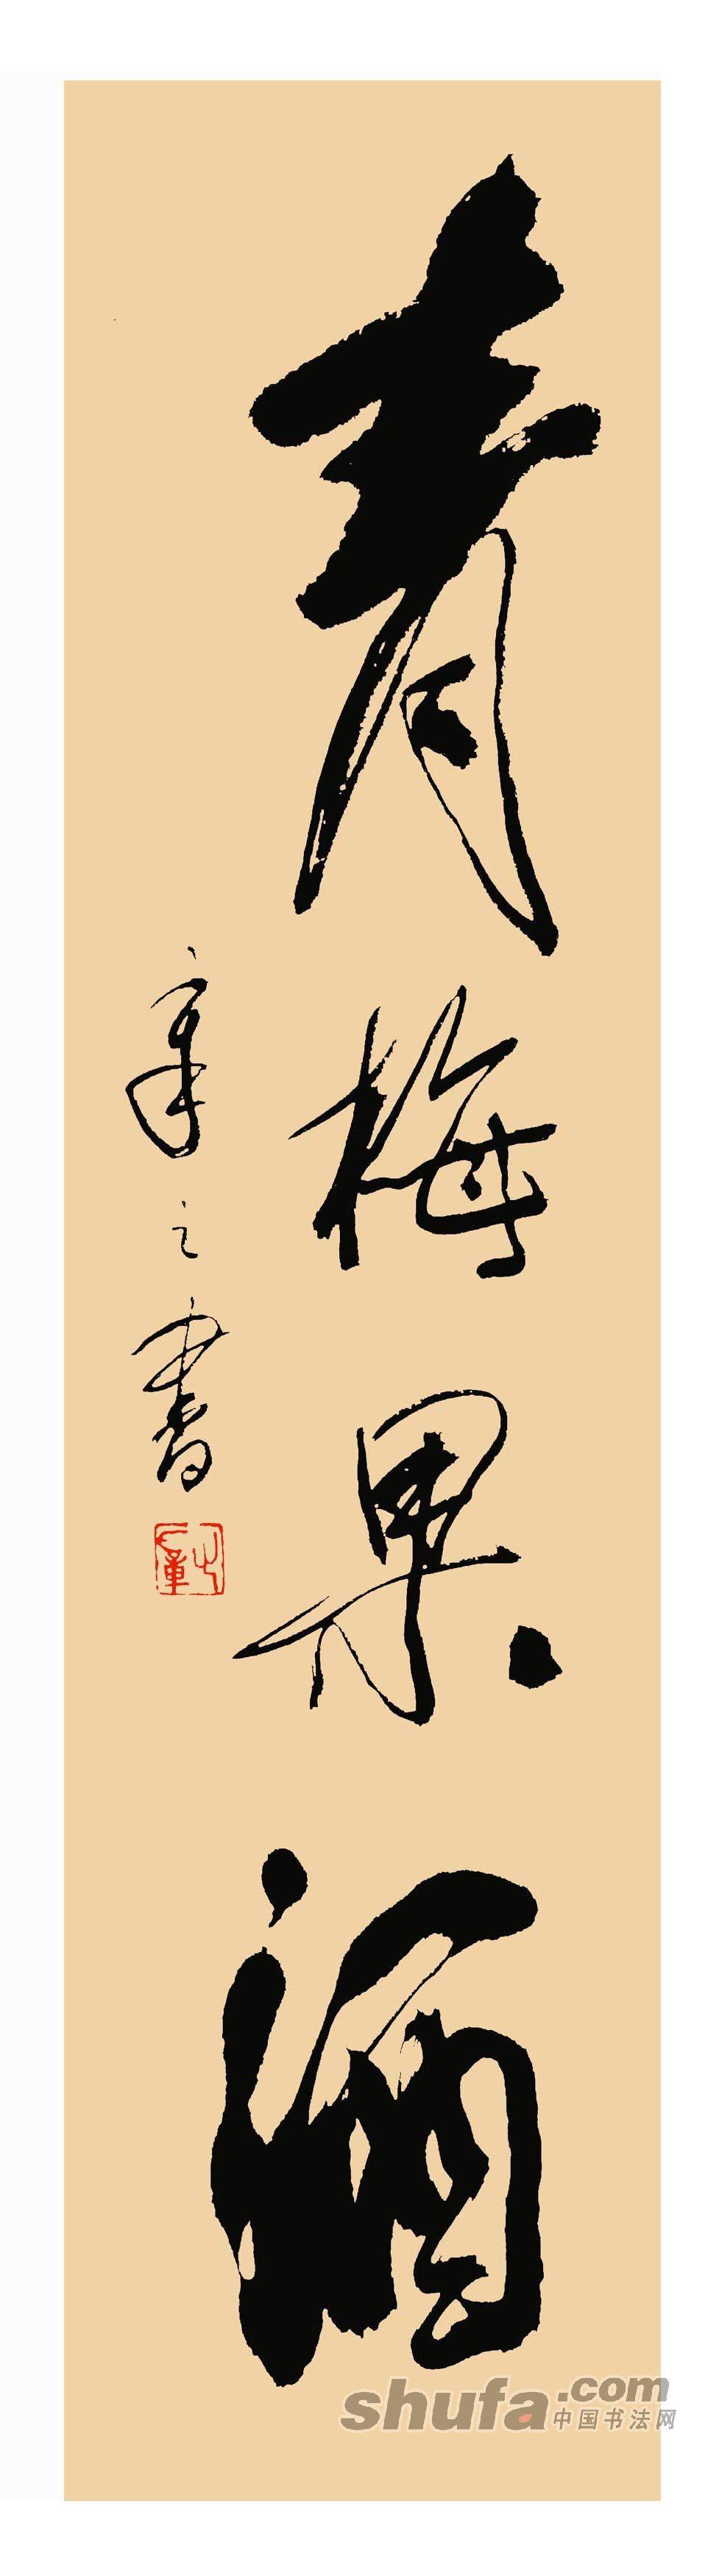 青梅果酒
章之書
shufa.com
中国书法网